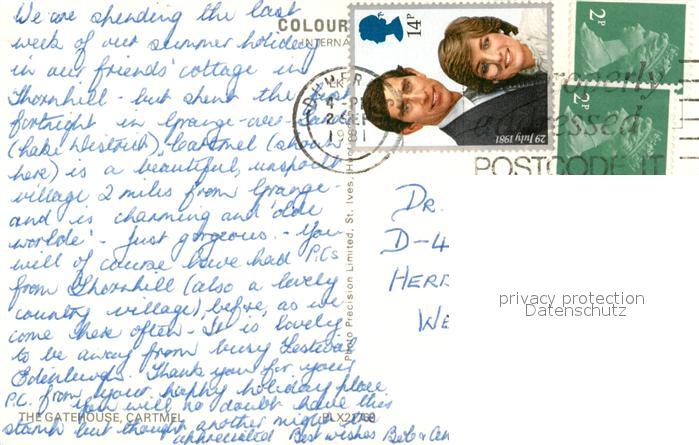 We are spending the last
week of our summer holiday
in our friends' cottage in
Thornhill - but spent the
fortnight in Grange-over-Sands
(Lake District), Cartmel (shown
here) is a beautiful, unspoilt
village 2 miles from Grange -
and is charming and 'olde
worlde' - just gorgeous. - You
will of course have had P.Cs
from Thornhill (also a lovely
country village), before, as we
come here often - It is lovely
to be away from busy Festival
Edinburgh. Thank you for your
P.C. from your happy holiday place
You will no doubt have this
stamp but thought another might be
appreciated Best wishes
THE GATEHOUSE, CARTMEL PLX21760
COLOUR
INTERNA
Photo Precision Limited, St. Ives, H
14P
29 July 1981
2P
2P
2 SEP
1981
properly
addressed
POSTCODE IT
DR.
D-4
HERR
WE
privacy protection
Datenschutz